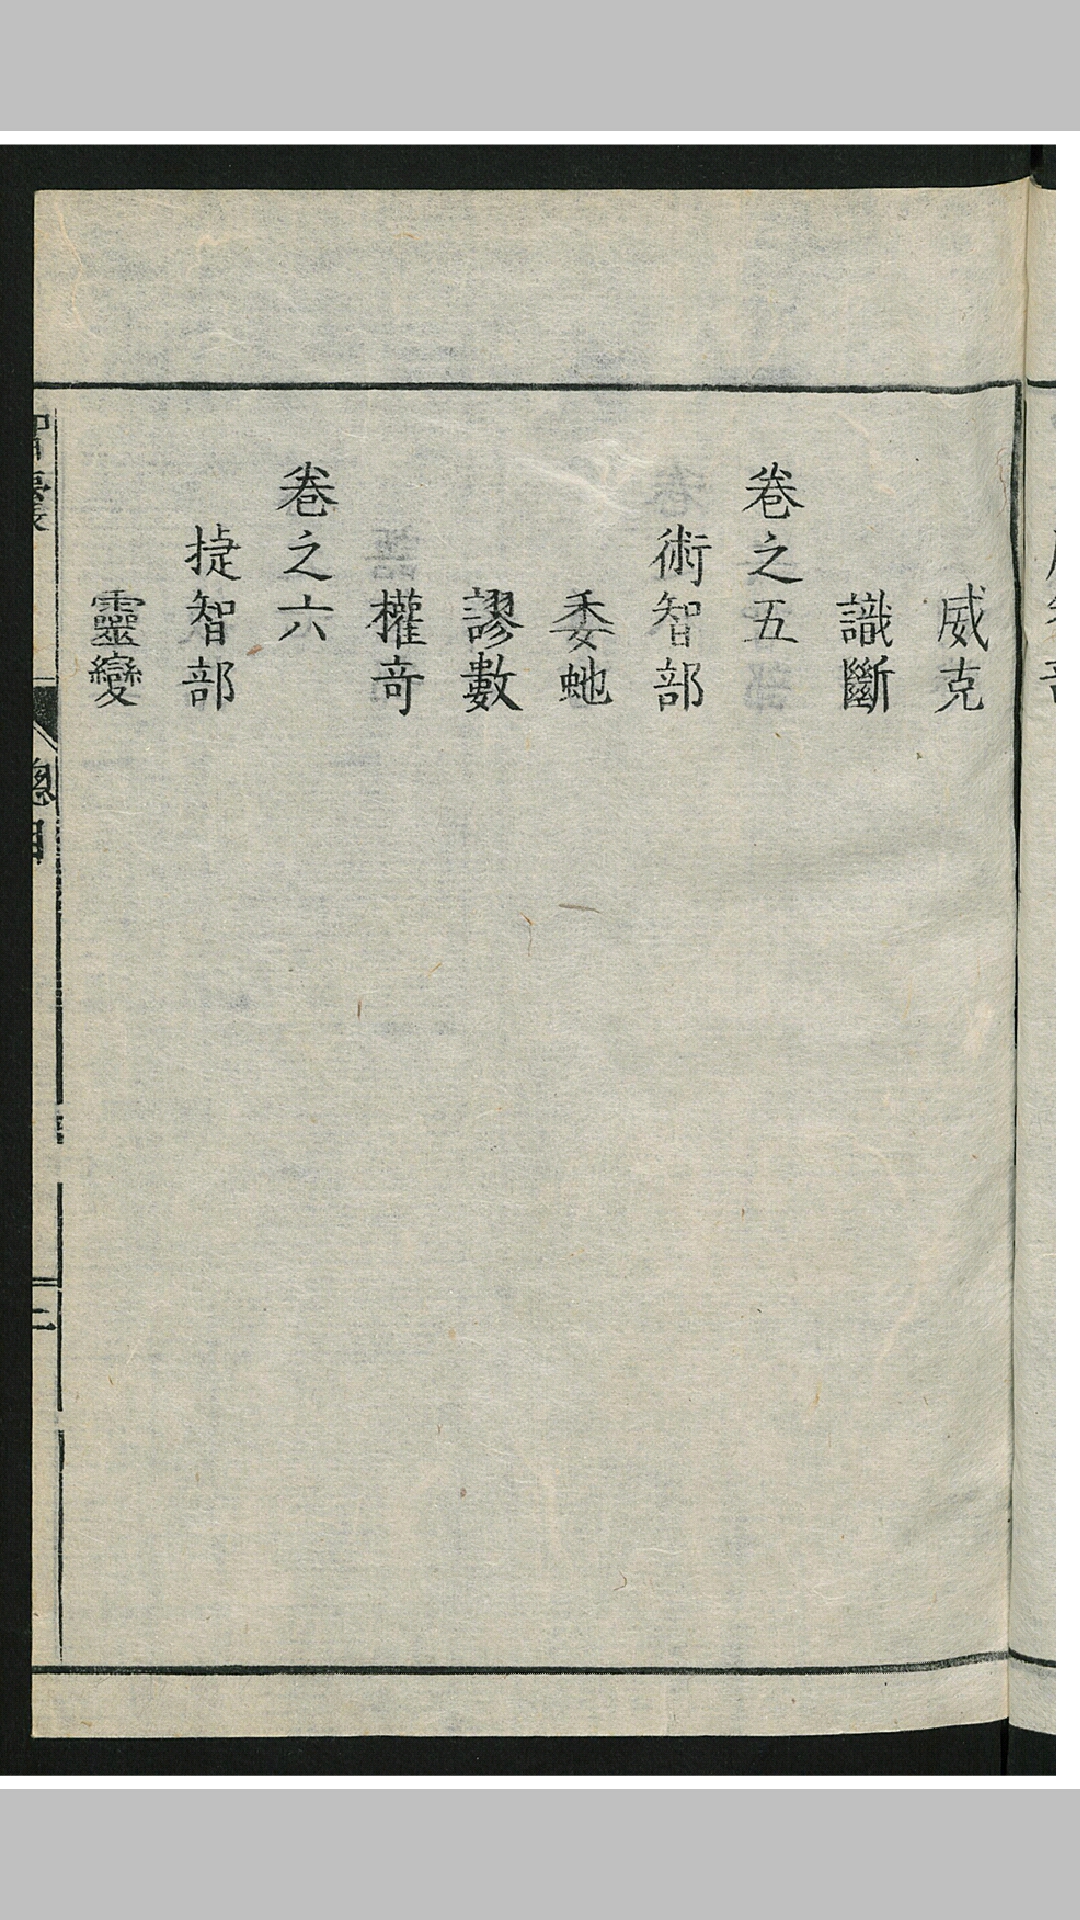 威克
識斷
卷之五
術智部
委虵
謬數
權奇
卷之六
捷智部
靈變
智囊
總目
二